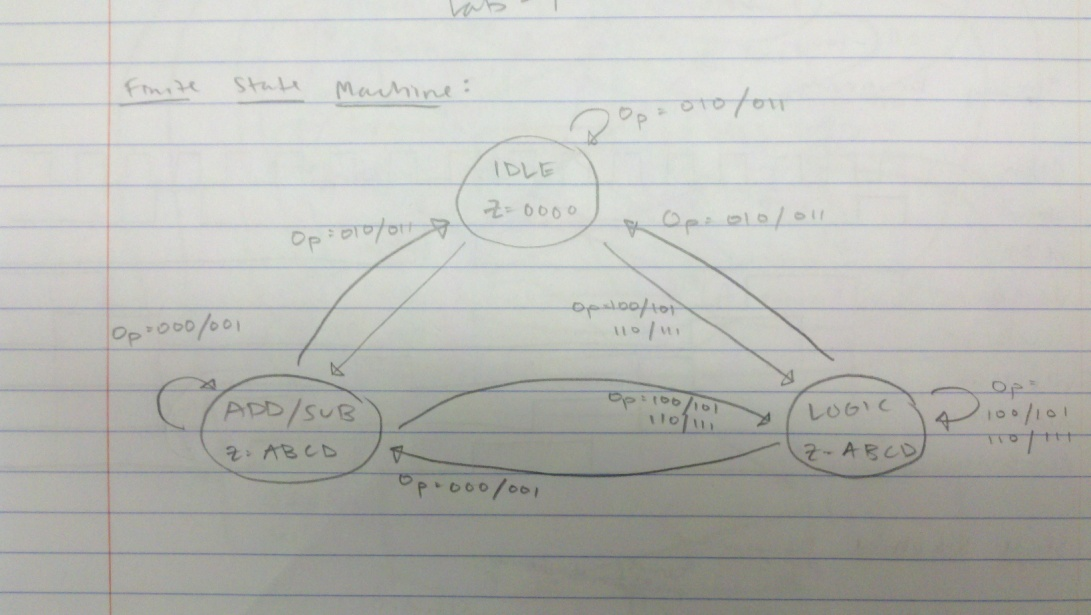 Lab - 1
Finite State Machine:
Op = 010/011
IDLE
Z = 0000
Op = 010/011
Op = 010/011
Op = 100/101
110/111
Op = 000/001
ADD/SUB
Z = ABCD
Op = 100/101
110/111
LOGIC
Z = ABCD
Op =
100/101
110/111
Op = 000/001